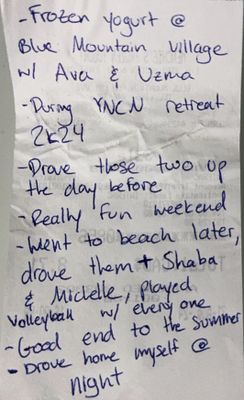 - Frozen yogurt @
Blue Mountain Village
w/ Ava & Uzma
- During YNCN retreat
2k24
- Drove those two up
the day before
- Really fun weekend
- Went to beach later,
drove them + Shaba
& Michelle, played
Volleyball w/ every one
- Good end to the summer
- Drove home myself @
night